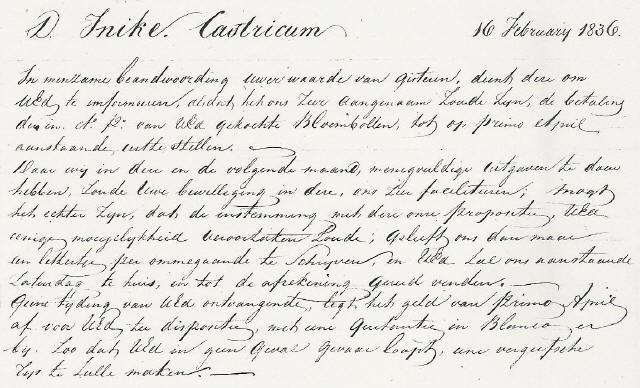 D. Snike. Castricum 16 February 1836.
In minzame beandwoording uwer waarde van gisteren, dient dese om
UEd te informeren, dat het ons zeer aangenaam zoude zijn, de betaling
der in Ao. Po. van UEd gekochte Bloembollen, tot op primo April
aanstaande, uit te stellen.
Daar wij in dese en de volgende maand, menigvuldige uitgaven te doen
hebben, zoude Uwe bewilleging in dese, ons zeer faciliteren; mogt
het echter zijn, dat de instemming met dese onse propositie, UEd
eenige moeyelijkheid veroorzaken zoude; gelieft ons dan maar
een lettertje per ommegaande te schrijven en UEd zal ons aanstaande
Saturdag te huis, en tot de afrekening gereed vinden.
Geene tijding van UEd ontvangende, ligt het geld van primo April
af voor UEd ter dispositie, met eene Quitantie in Blanco er
bij. Zoo dat UEd in geen geval gevaar loopt, eene vergeefsche
reys te zulle maken.